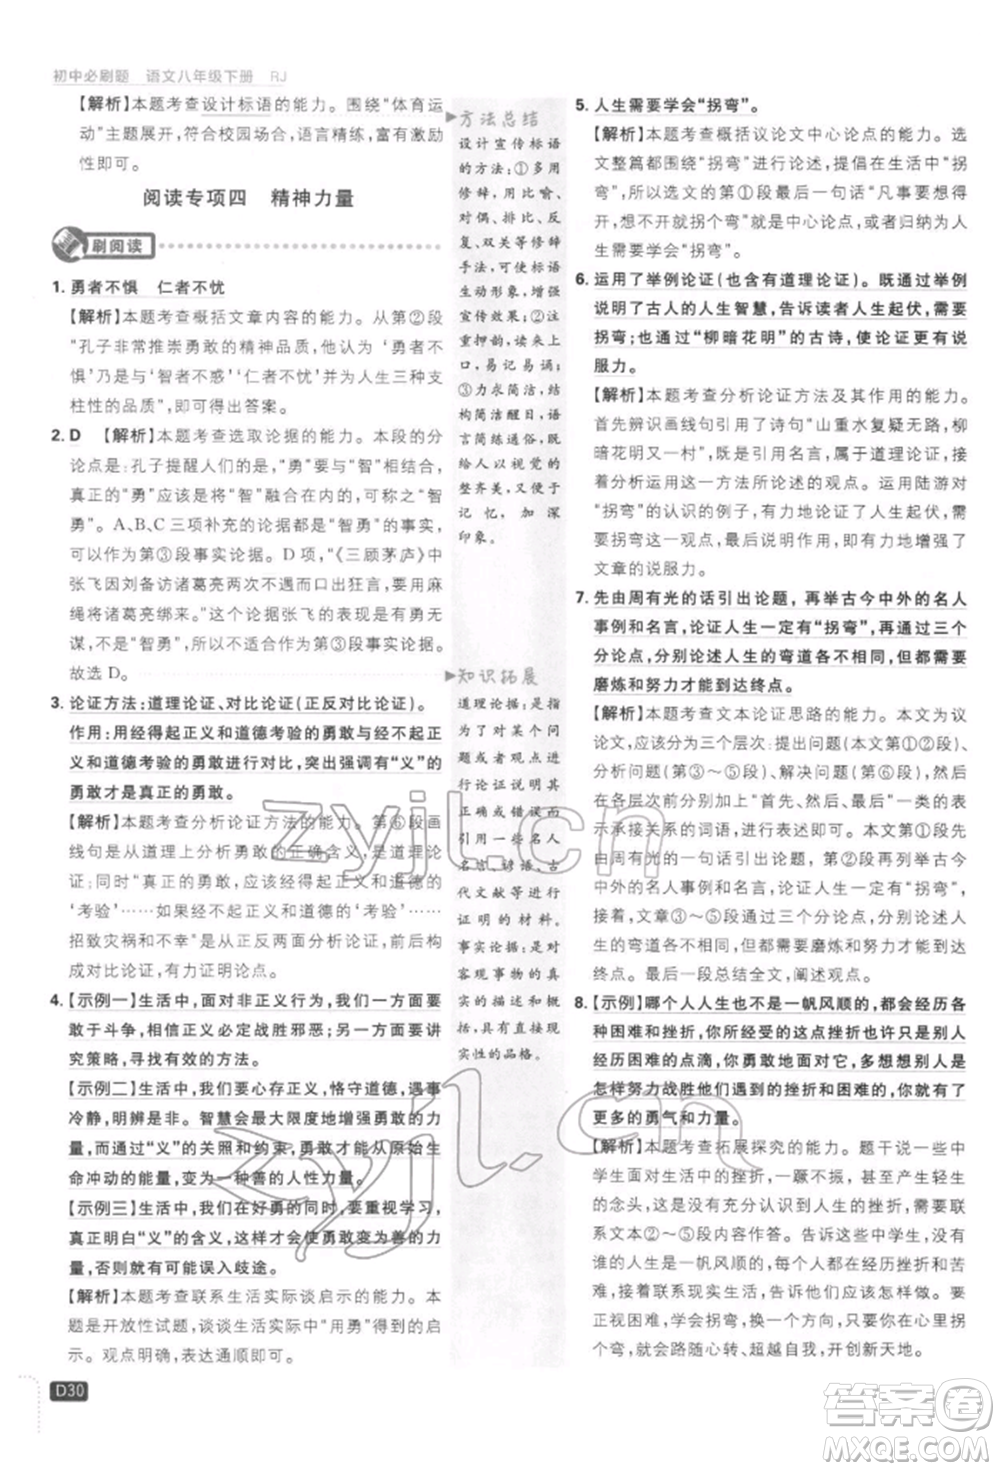 初中必刷题 语文八年级下册 RJ
【解析】本题考查设计标语的能力。围绕“体育运
动”主题展开，符合校园场合，语言精练，富有激励
性即可。
阅读专项四 精神力量
刷阅读
1. 勇者不惧 仁者不忧
【解析】本题考查概括文章内容的能力。从第②段
“孔子非常推崇勇敢的精神品质，他认为‘勇者不
惧’乃是与‘智者不惑’‘仁者不忧’并为人生三种支
柱性的品质”，即可得出答案。
2. D 【解析】本题考查选取论据的能力。本段的分
论点是：孔子提醒人们，“勇”要与“智”相融合，
真正的“勇”应该是将“智”融合在内的，可称之“智
勇”。A、B、C三项补充的论据都与“智勇”的事实，
可以作为第③段事实论据。D项，《三顾茅庐》中
张飞因刘备访诸葛亮两次不遇而口出狂言，要用麻
绳将诸葛亮绑来。”这个论据张飞的表现是有勇无
谋，不是“智勇”，所以不适合作为第③段事实论据。
故选D。
3. 论证方法：道理论证、对比论证（正反对比论证）。
作用：用经得起正义和道德考验的勇敢与经不起正
义和道德考验的勇敢进行对比，突出了有“义”的
勇敢才是真正的勇敢。
【解析】本题考查分析论证方法的能力。第⑥段画
线句是从道理上分析勇敢的正确含义，是道理论
证；同时“真正的勇敢，应该能经得起正义和道德的
‘考验’……如果经不起正义和道德的‘考验’，可能
招致灾祸和不幸”是从正反两面分析论证，前后构成
对比论证，有力证明论点。
4. 【示例一】生活中，面对非正义行为，我们要勇
敢于斗争，相信正义必定战胜邪恶；另一方面要讲
究策略，寻找有效的方法。
【示例二】生活中，我们要心存正义，恪守道德，遇事
冷静，明辨是非。智慧会最大限度地增强勇敢的力
量，而通过“义”的关照和约束，勇敢可能从原始生
命冲动的能量，变为一种善的力量。
【示例三】生活中，我们要重视思考，重视学习，
真正明白“义”的含义，这样会使勇敢成为善的力
量，而不至于有可能误入歧途。
【解析】本题考查联系生活实际谈启示的能力。本
题是开放性试题，谈谈生活实际中“用勇”的启
示。观点明确，表达通顺即可。
D30
方法总结
设计宣传标语
的方法：①多用
修辞，用比喻、
对偶、排比、反
复、双关等修辞
手法，可使标语
生动形象，增强
宣传效果；②注
重押韵，读来上
口，易记易诵；
③力求简洁，结
构简洁醒目，语
言简练通俗，能
给人以视觉的
整齐美，便于
记忆，加深
印象。
知识拓展
道理论据：是指
为了对某个问
题或者观点进
行论证说明其
正确或错误而
引用一些名人
名言、谚语、古
代文献等进行
证明的材料。
事实论据：是对
客观事物的真
实的描述和概
括，具有直接现
实性的品格。
5. 人生需要学会“拐弯”。
【解析】本题考查概括议论文中心论点的能力。选
文整篇都围绕“拐弯”进行论述，提倡在生活中“拐
弯”，所以选文的第①段最后一句话“凡事要想得
开，遇到不顺的时候要‘拐个弯’”就是中心论点，或者归纳为人
生需要学会“拐弯”。
6. 运用了举例论证（也含有道理论证）。既通过举例
说明了古人的人生智慧，告诉读者人生起伏，需要
拐弯；也通过“柳暗花明”的古诗，使论证更有说
服力。
【解析】本题考查分析论证方法及其作用的能力。
首先辨识画线句引用了诗句“山重水复疑无路，柳
暗花明又一村”，应是引用名言，属于道理论证，接
着分析运用这一方法所论述的观点。运用陆游对
“拐弯”的认识的例子，告诉人们人生起伏，需要
“拐弯”这一观点，更清晰，也有力地增强了
文章的说服力。
7. 先由周有光的话引出论题，再举古今中外的名人
事例和名言，论证人生一定有“拐弯”，再通过三个
分论点，分别论述人生的弯道各不相同，但都需要
磨炼和努力才能到达终点。
【解析】本题考查文本论证思路的能力。本文为议
论文，应该分为三个层次：提出问题（本文第①②段）、
分析问题（第③～⑤段）、解决问题（第⑥段），所以
在文段之前分别加上“首先、然后、最后”等能够表
示承接关系的词语，进行论述即可。本文第①段先
由周有光的一句话引出论题，第②段再列举古今
中外的名人事例和名言，论证人生有“拐弯”，接
着，文章③～⑤段，通过三个分论点，分别论述人
生的弯道各不相同，都需要磨炼和努力才能到达
终点。最后一段总结全文，阐述观点。
8. 【示例】哪个人人生也不是一帆风顺的，都会经历各
种困难和挫折，你所经受的这点挫折也许只是别人
经历困难的点滴，你要勇敢地面对它，多想想别人是
怎样努力战胜他们遇到的挫折和困难的，你就有了
更多的勇气和力量。
【解析】本题考查拓展探究的能力。题干说一些中
学生面对生活中的挫折，一蹶不振，甚至产生轻生
的念头，这是没有充分认识到人生的挫折，需要联系
文本②～⑤段内容作答。告诉这些中学生，应该
明白人生不可能一帆风顺，总会有这样那样的困
难。接着联系现实生活，谈怎么样做即可。如：要
正视困难，学会拐弯，只要学会在人生的路口拐个
弯，就会路随心转、超越自我、开创新天地。
zyjl.cn
zyjl.cn
答案圈
MXQE.COM